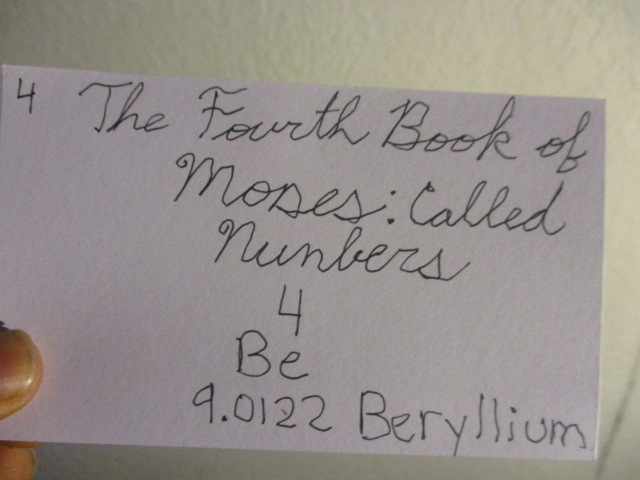 4 The Fourth Book of
Moses: Called
Nunbers
4
Be
9.0122 Beryllium